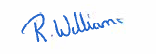 R. Williams